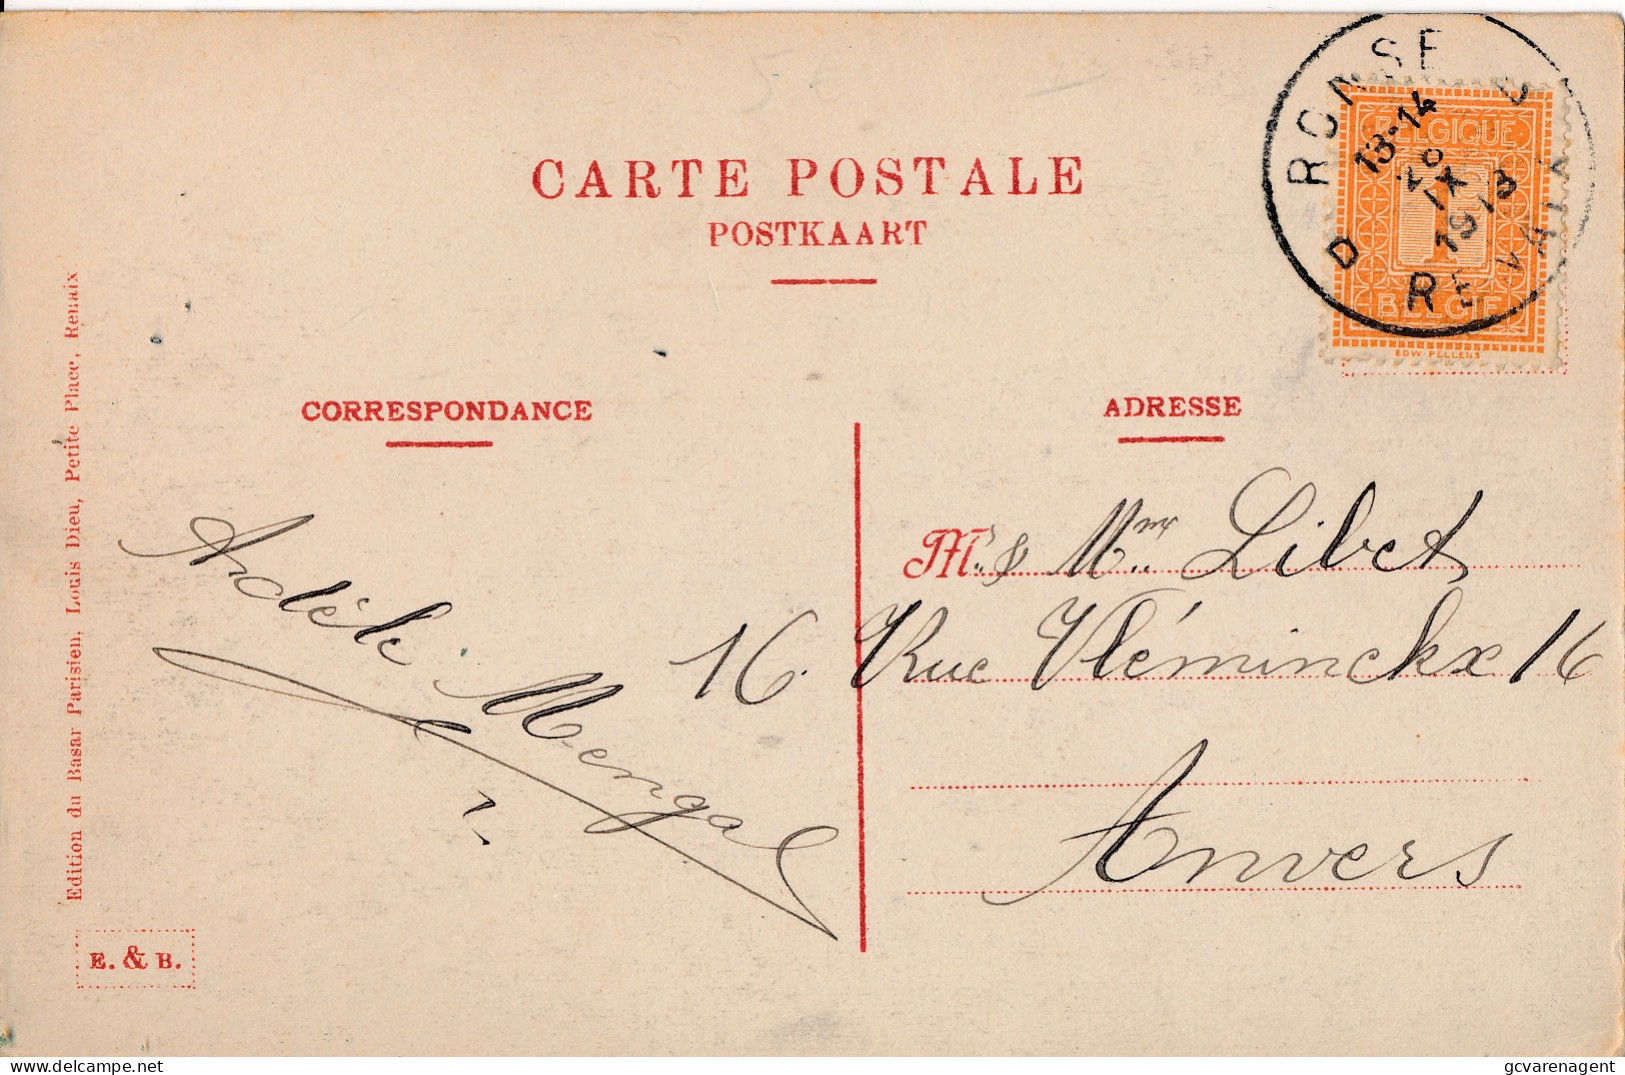 CARTE POSTALE
POSTKAART
RONSE
D RENAIX D
13-14
IX
1913
BELGIQUE
1
BELGIË
EDW PELLENS
CORRESPONDANCE
ADRESSE
Adèle Mengal
M. & Mme Libet
16. Rue Vléminckx 16
Anvers
Edition du Basar Parisien, Louis Dieu, Petite Place, Renaix
E. & B.
delcampe.net
gcvarenagent